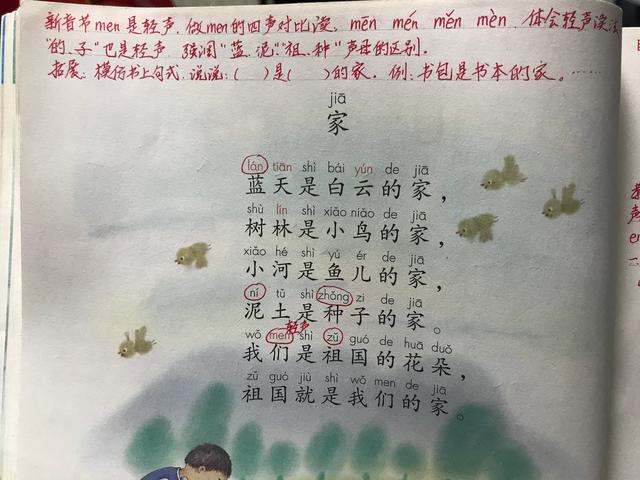 新音节men是轻声,做men的四声对比读,mēn mén měn mèn,体会轻声读法
"的、子"也是轻声,强调"蓝、泥""祖、种"声母的区别。
拓展:模仿书上句式,说说:( )是( )的家。例:书包是书本的家。……
jiā
家
lán tiān shì bái yún de jiā
蓝天是白云的家,
shù lín shì xiǎo niǎo de jiā
树林是小鸟的家,
xiǎo hé shì yú ér de jiā
小河是鱼儿的家,
ní tǔ shì zhǒng zi de jiā
泥土是种子的家。
轻声
wǒ men shì zǔ guó de huā duǒ
我们是祖国的花朵,
zǔ guó jiù shì wǒ men de jiā
祖国就是我们的家。
声
en